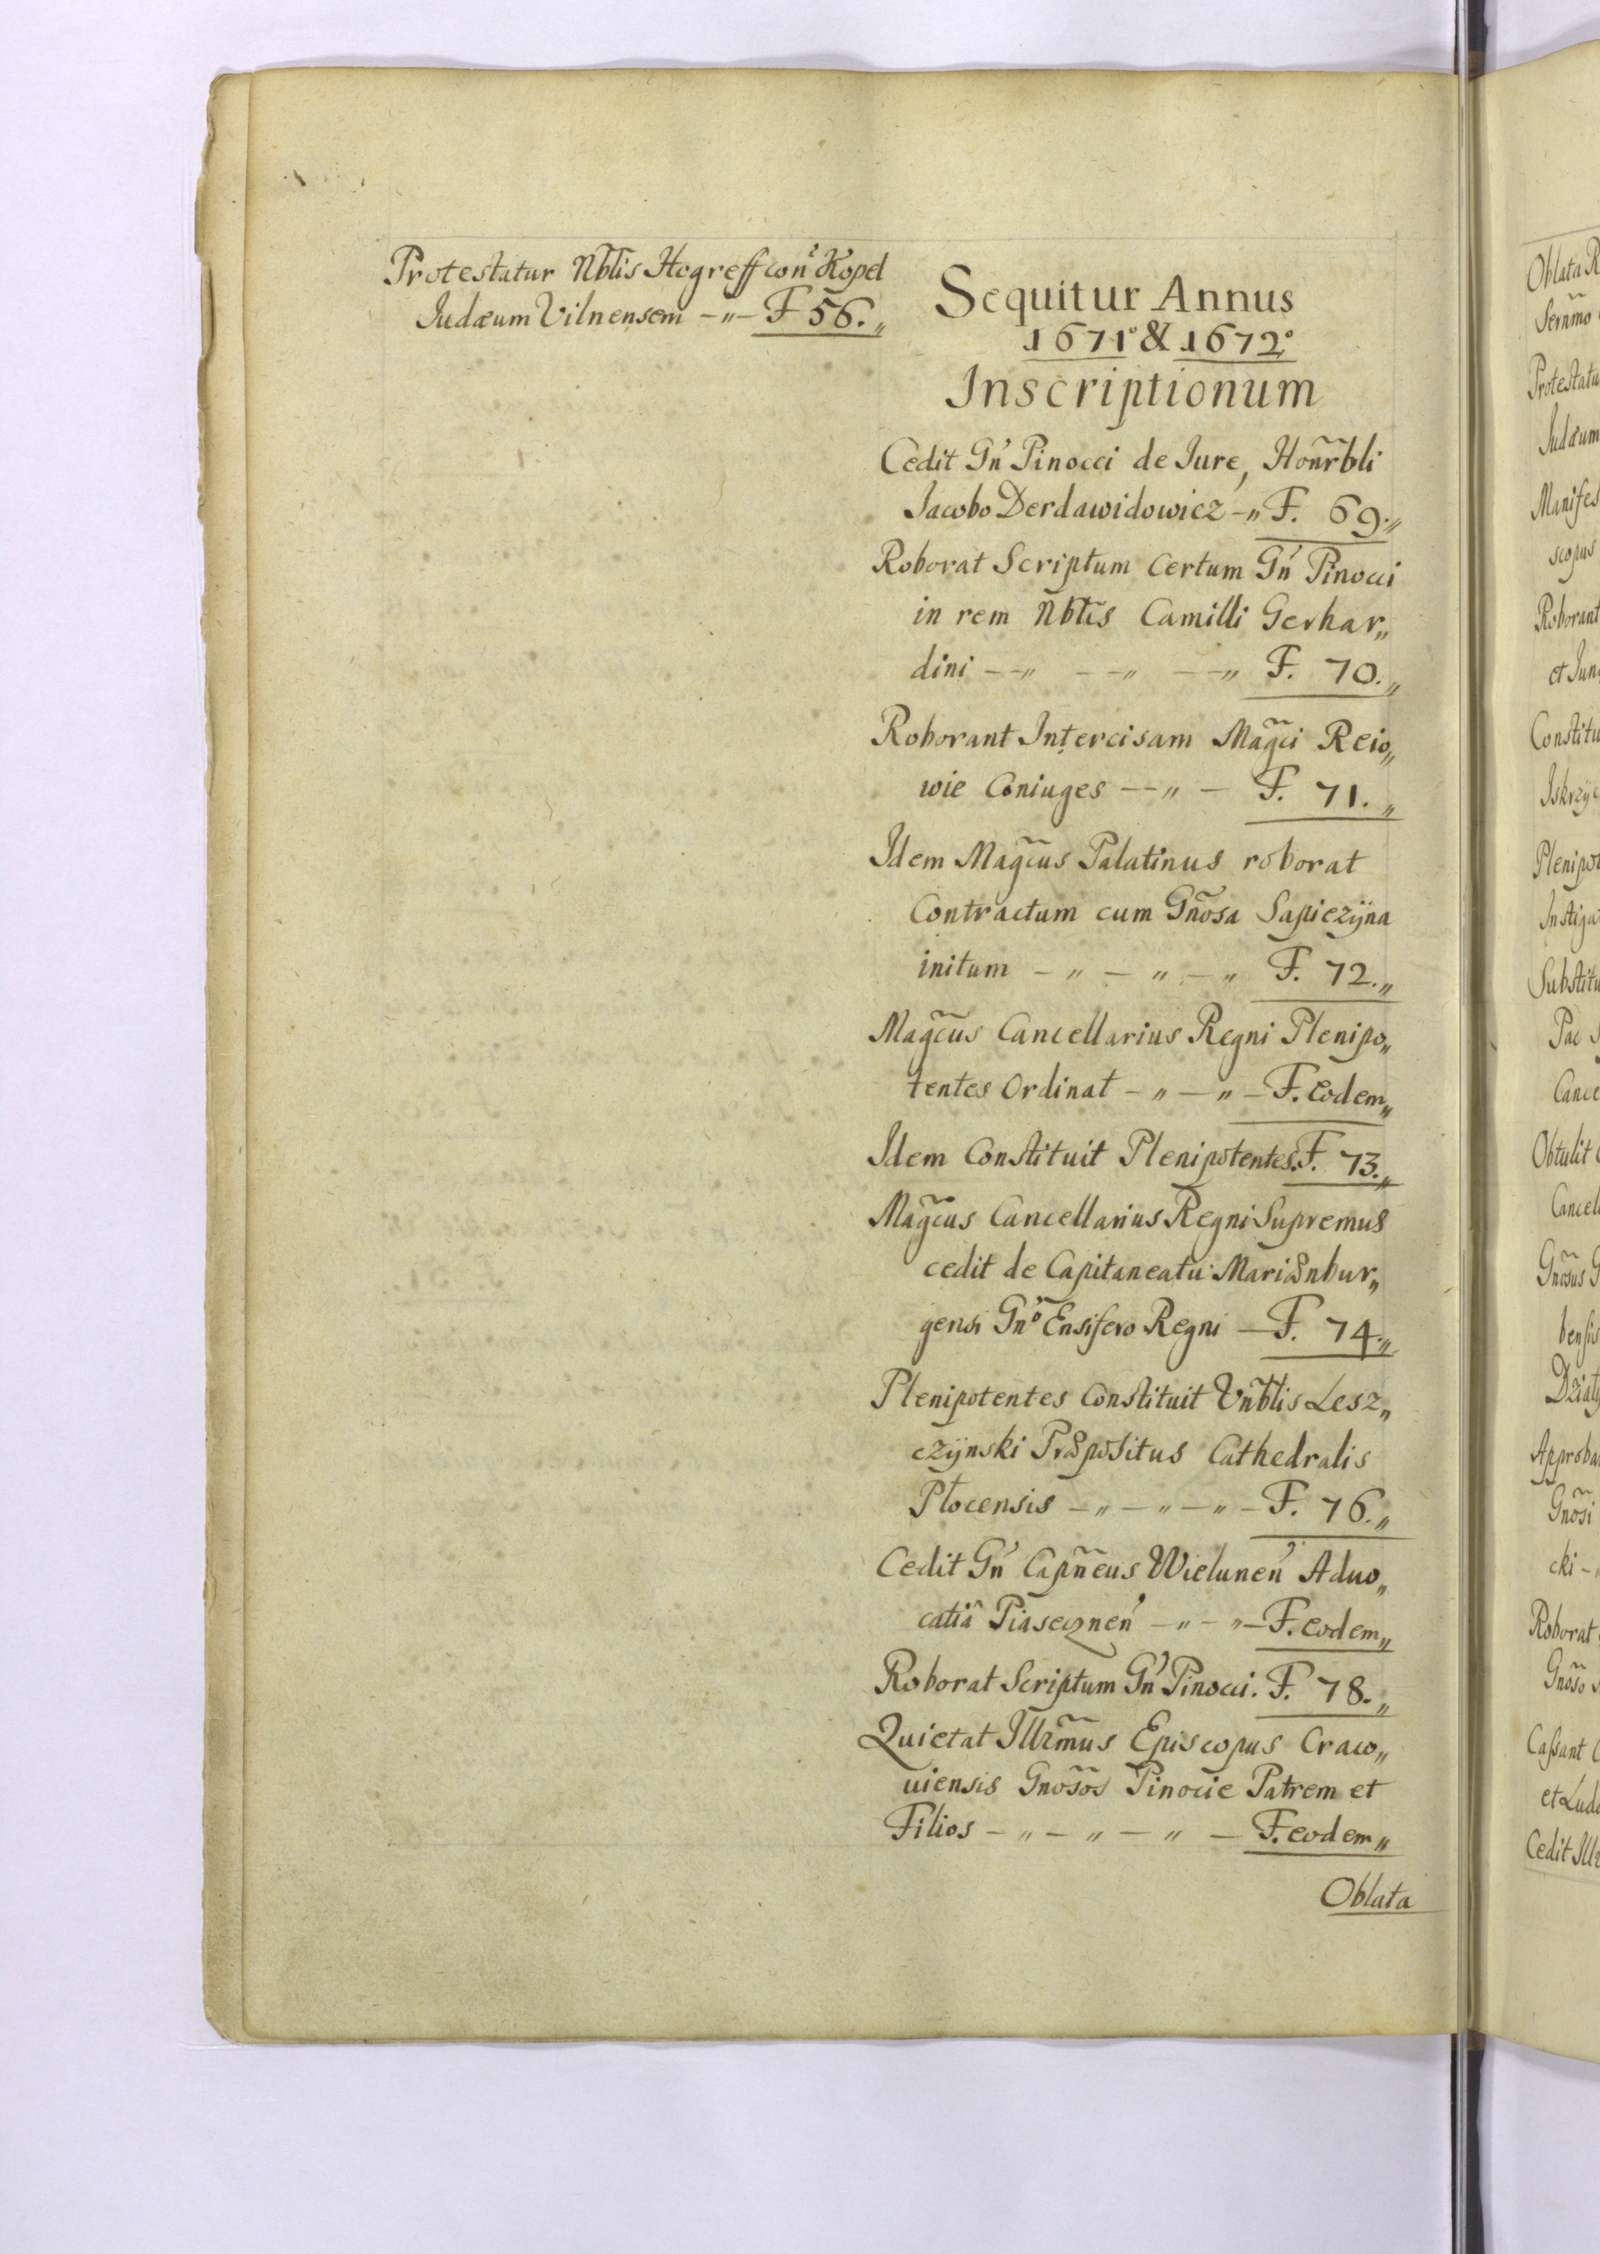 Protestatur Nblis Hegreff con͛ Kopel
Judæum Vilnensem -„- F 56.„
Sequitur Annus
1671° & 1672°
Inscriptionum
Cedit Gn͛ Pinocci de Jure, Honr̃bli
Jacobo Derdawidowicz -„ F. 69.„
Roborat Scriptum Certum Gn͛ Pinocci
in rem Nblis Camilli Gerhar„
dini --„ --„ --„ F. 70.„
Roborant Intercisam Mag̃ci Reio„
wie Coniuges --„ - F. 71.„
Idem Mag̃cus Palatinus roborat
Contractum cum Gñosa Sapiezÿna
initum -„-„-„ F. 72.„
Mag̃cus Cancellarius Regni Plenipo„
tentes Ordinat -„-„- F. Eodem„
Idem Constituit Plenipotentes. F. 73.„
Mag̃cus Cancellarius Regni Supremus
cedit de Capitaneatu Mariænbur„
gensi Gn͛o Ensifero Regni - F. 74.„
Plenipotentes Constituit Vñblis Lesz„
czÿnski Præpositus Cathedralis
Płocensis -„-„-„- F. 76.„
Cedit Gn͛ Capñeus Wielunen͛ Aduo„
catiâ Piasecznen͛ -„-„- F. eodem„
Roborat Scriptum Gn͛ Pinocci. F. 78.„
Quietat Illr̃mus Episcopus Craco„
uiensis Gnõsos Pinocie Patrem et
Filios -„-„-„- F. eodem„
Oblata
Oblata R
Sernm̃o
Protestatu
Judæum
Manifes
scopus
Roborant
et Jun
Constitu
Iskrzÿc
Plenipot
Instiga
Substitu
Pac
Cance
Obtulit
Cancel
Gnõsus G
bensis
Działy
Approba
Gnõsi
cki -
Roborat
Gnõso
Caſsant
et Lud
Cedit Illr